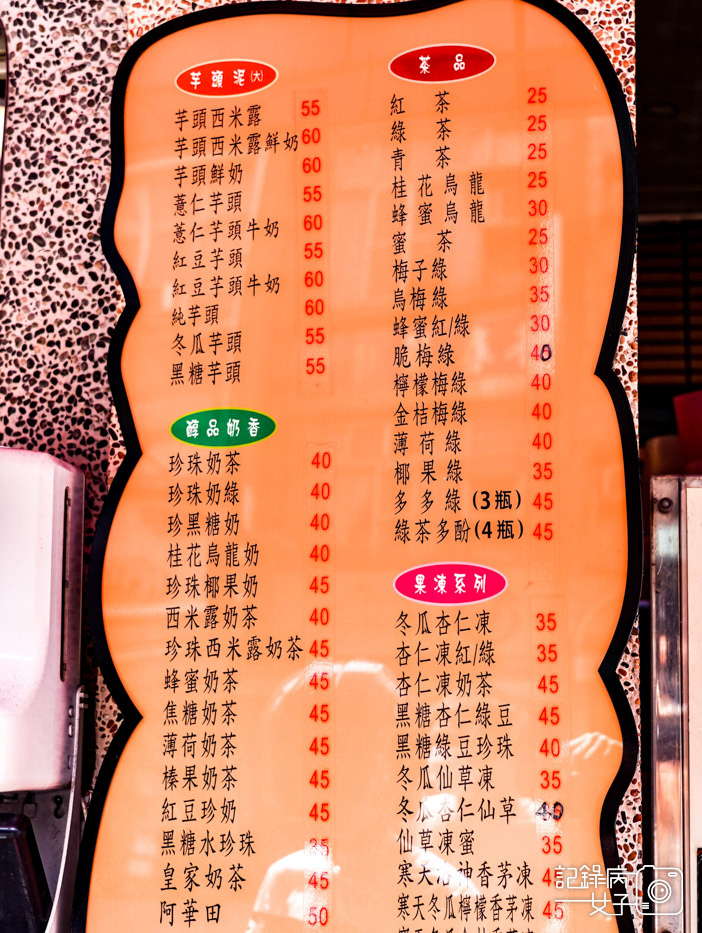 芋頭泥(大)
芋頭西米露 55
芋頭西米露鮮奶 60
芋頭鮮奶 60
薏仁芋頭 55
薏仁芋頭牛奶 60
紅豆芋頭 55
紅豆芋頭牛奶 60
純芋頭 60
冬瓜芋頭 55
黑糖芋頭 55
醇品奶香
珍珠奶茶 40
珍珠奶綠 40
珍黑糖奶 40
桂花烏龍奶 40
珍珠椰果奶 45
西米露奶茶 40
珍珠西米露奶茶 45
蜂蜜奶茶 45
焦糖奶茶 45
薄荷奶茶 45
榛果奶茶 45
紅豆珍奶 45
黑糖水珍珠 35
皇家奶茶 45
阿華田 50
茶品
紅茶 25
綠茶 25
青茶 25
桂花烏龍 25
蜂蜜烏龍 30
蜜茶 25
梅子綠 30
烏梅綠 35
蜂蜜紅/綠 30
脆梅綠 40
檸檬梅綠 40
金桔梅綠 40
薄荷綠 40
椰果綠 35
多多綠(3瓶) 45
綠茶多酚(4瓶) 45
果凍系列
冬瓜杏仁凍 35
杏仁凍紅/綠 35
杏仁凍奶茶 45
黑糖杏仁綠豆 45
黑糖綠豆珍珠 40
冬瓜仙草凍 35
冬瓜杏仁仙草 40
仙草凍蜜 35
寒天洛神香茅凍 45
寒天冬瓜檸檬香茅凍 45
記錄病
女子